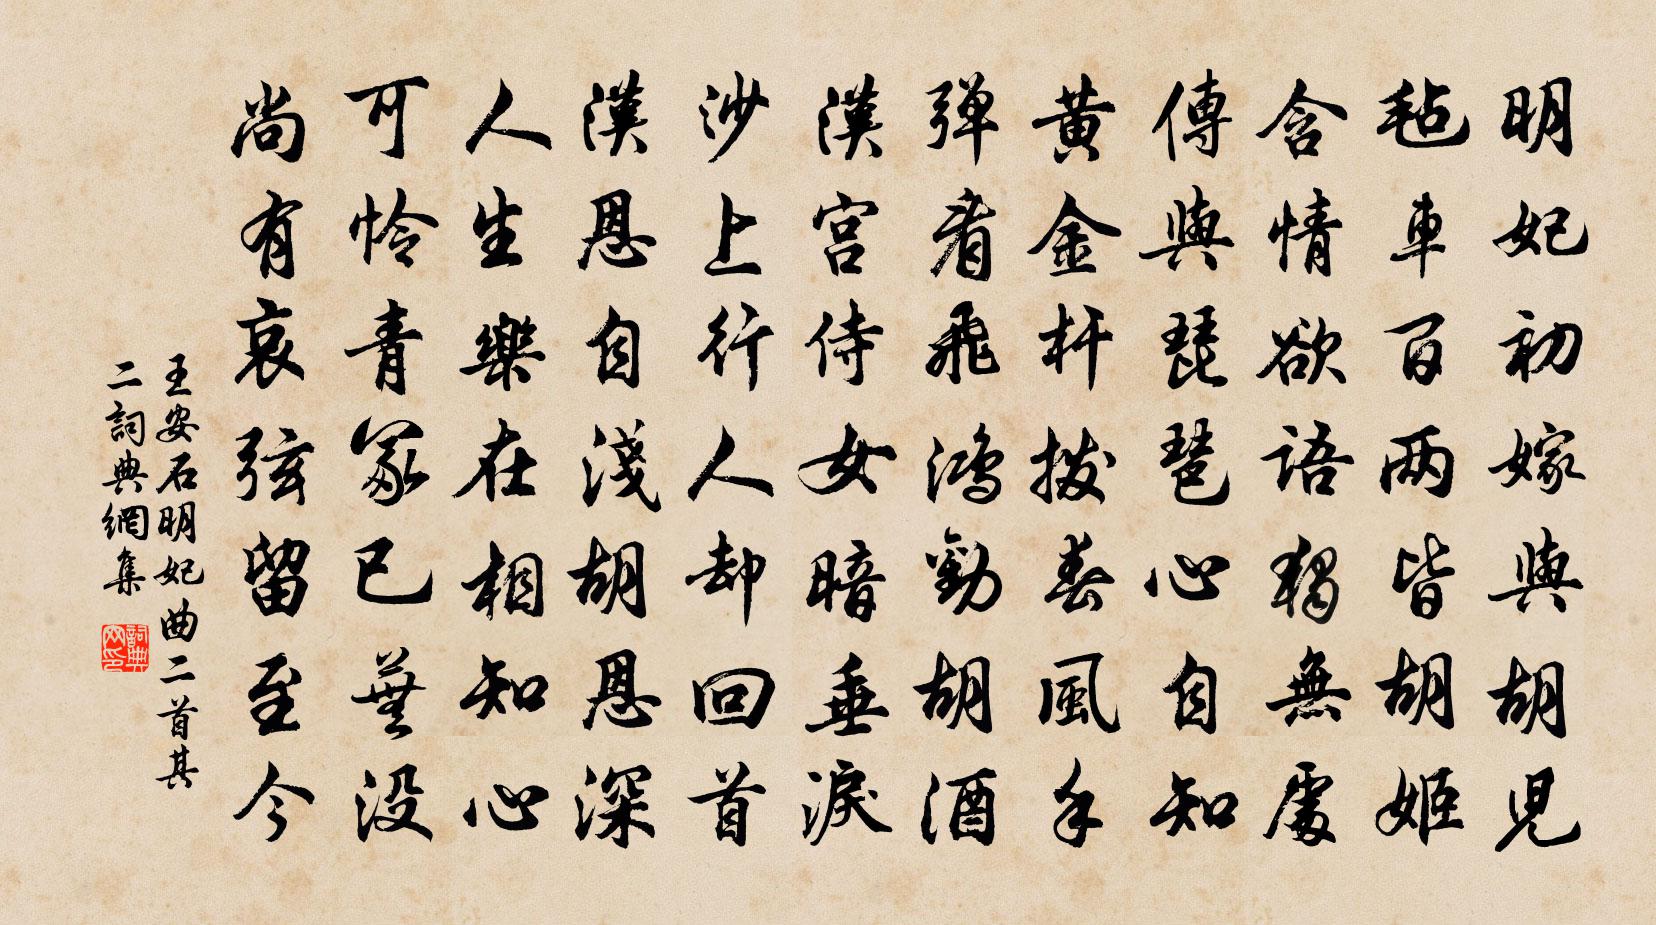 明妃初嫁與胡兒
毡車百両皆胡姬
含情欲語獨無處
傳與琵琶心自知
黃金杆撥春風手
弾看飛鴻勸胡酒
漢宮侍女暗垂淚
沙上行人却回首
漢恩自淺胡恩深
人生樂在相知心
可怜青冢已蕪没
尚有哀弦留至今
王安石明妃曲二首其
二詞典網集
詞典
网印